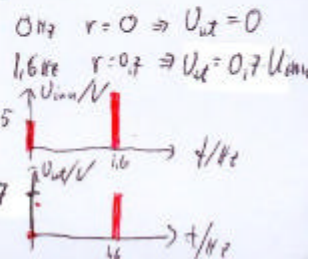 0Hz r=0 ⇒ Uut=0
1,6Hz r=0,7 ⇒ Uut=0,7 Uinn
Uinn/V
5
1,6
f/Hz
Uut/V
7
1,6
f/Hz